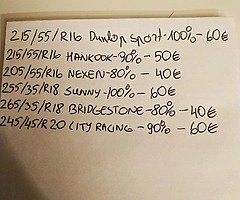 215/55/R16 Dunlop Sport-100%-60€
215/55/R16 HANKOOK-90%-50€
205/55/R16 NEXEN-80%-40€
255/35/R18 SUNNY-100%-60€
265/35/R18 BRIDGESTONE-80%-40€
245/45/R20 CITY RACING-90%-60€